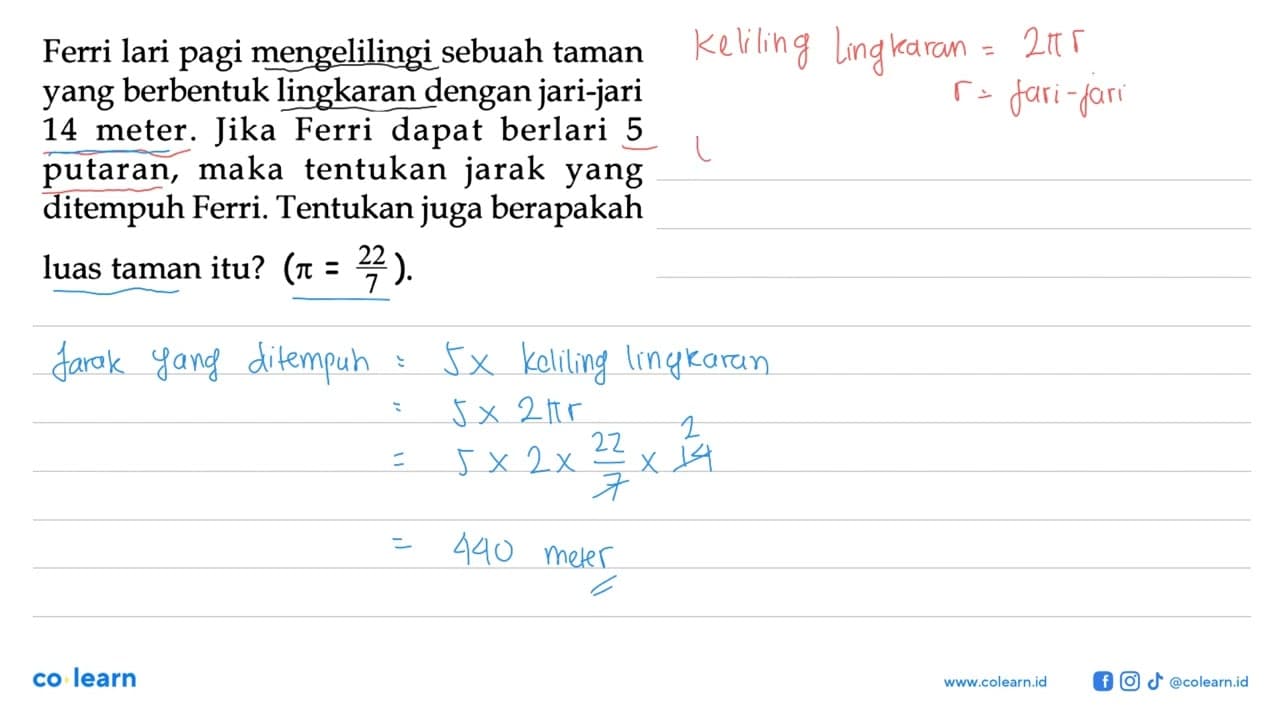 Ferri lari pagi mengelilingi sebuah taman
yang berbentuk lingkaran dengan jari-jari
14 meter. Jika Ferri dapat berlari 5
putaran, maka tentukan jarak yang
ditempuh Ferri. Tentukan juga berapakah
luas taman itu? (π = 22/7).
Keliling Lingkaran = 2πr
r = Jari-jari
Jarak yang ditempuh = 5 x keliling lingkaran
= 5 x 2πr
= 5 x 2 x 22/7 x 14 2
= 440 meter
co learn
www.colearn.id
@colearn.id